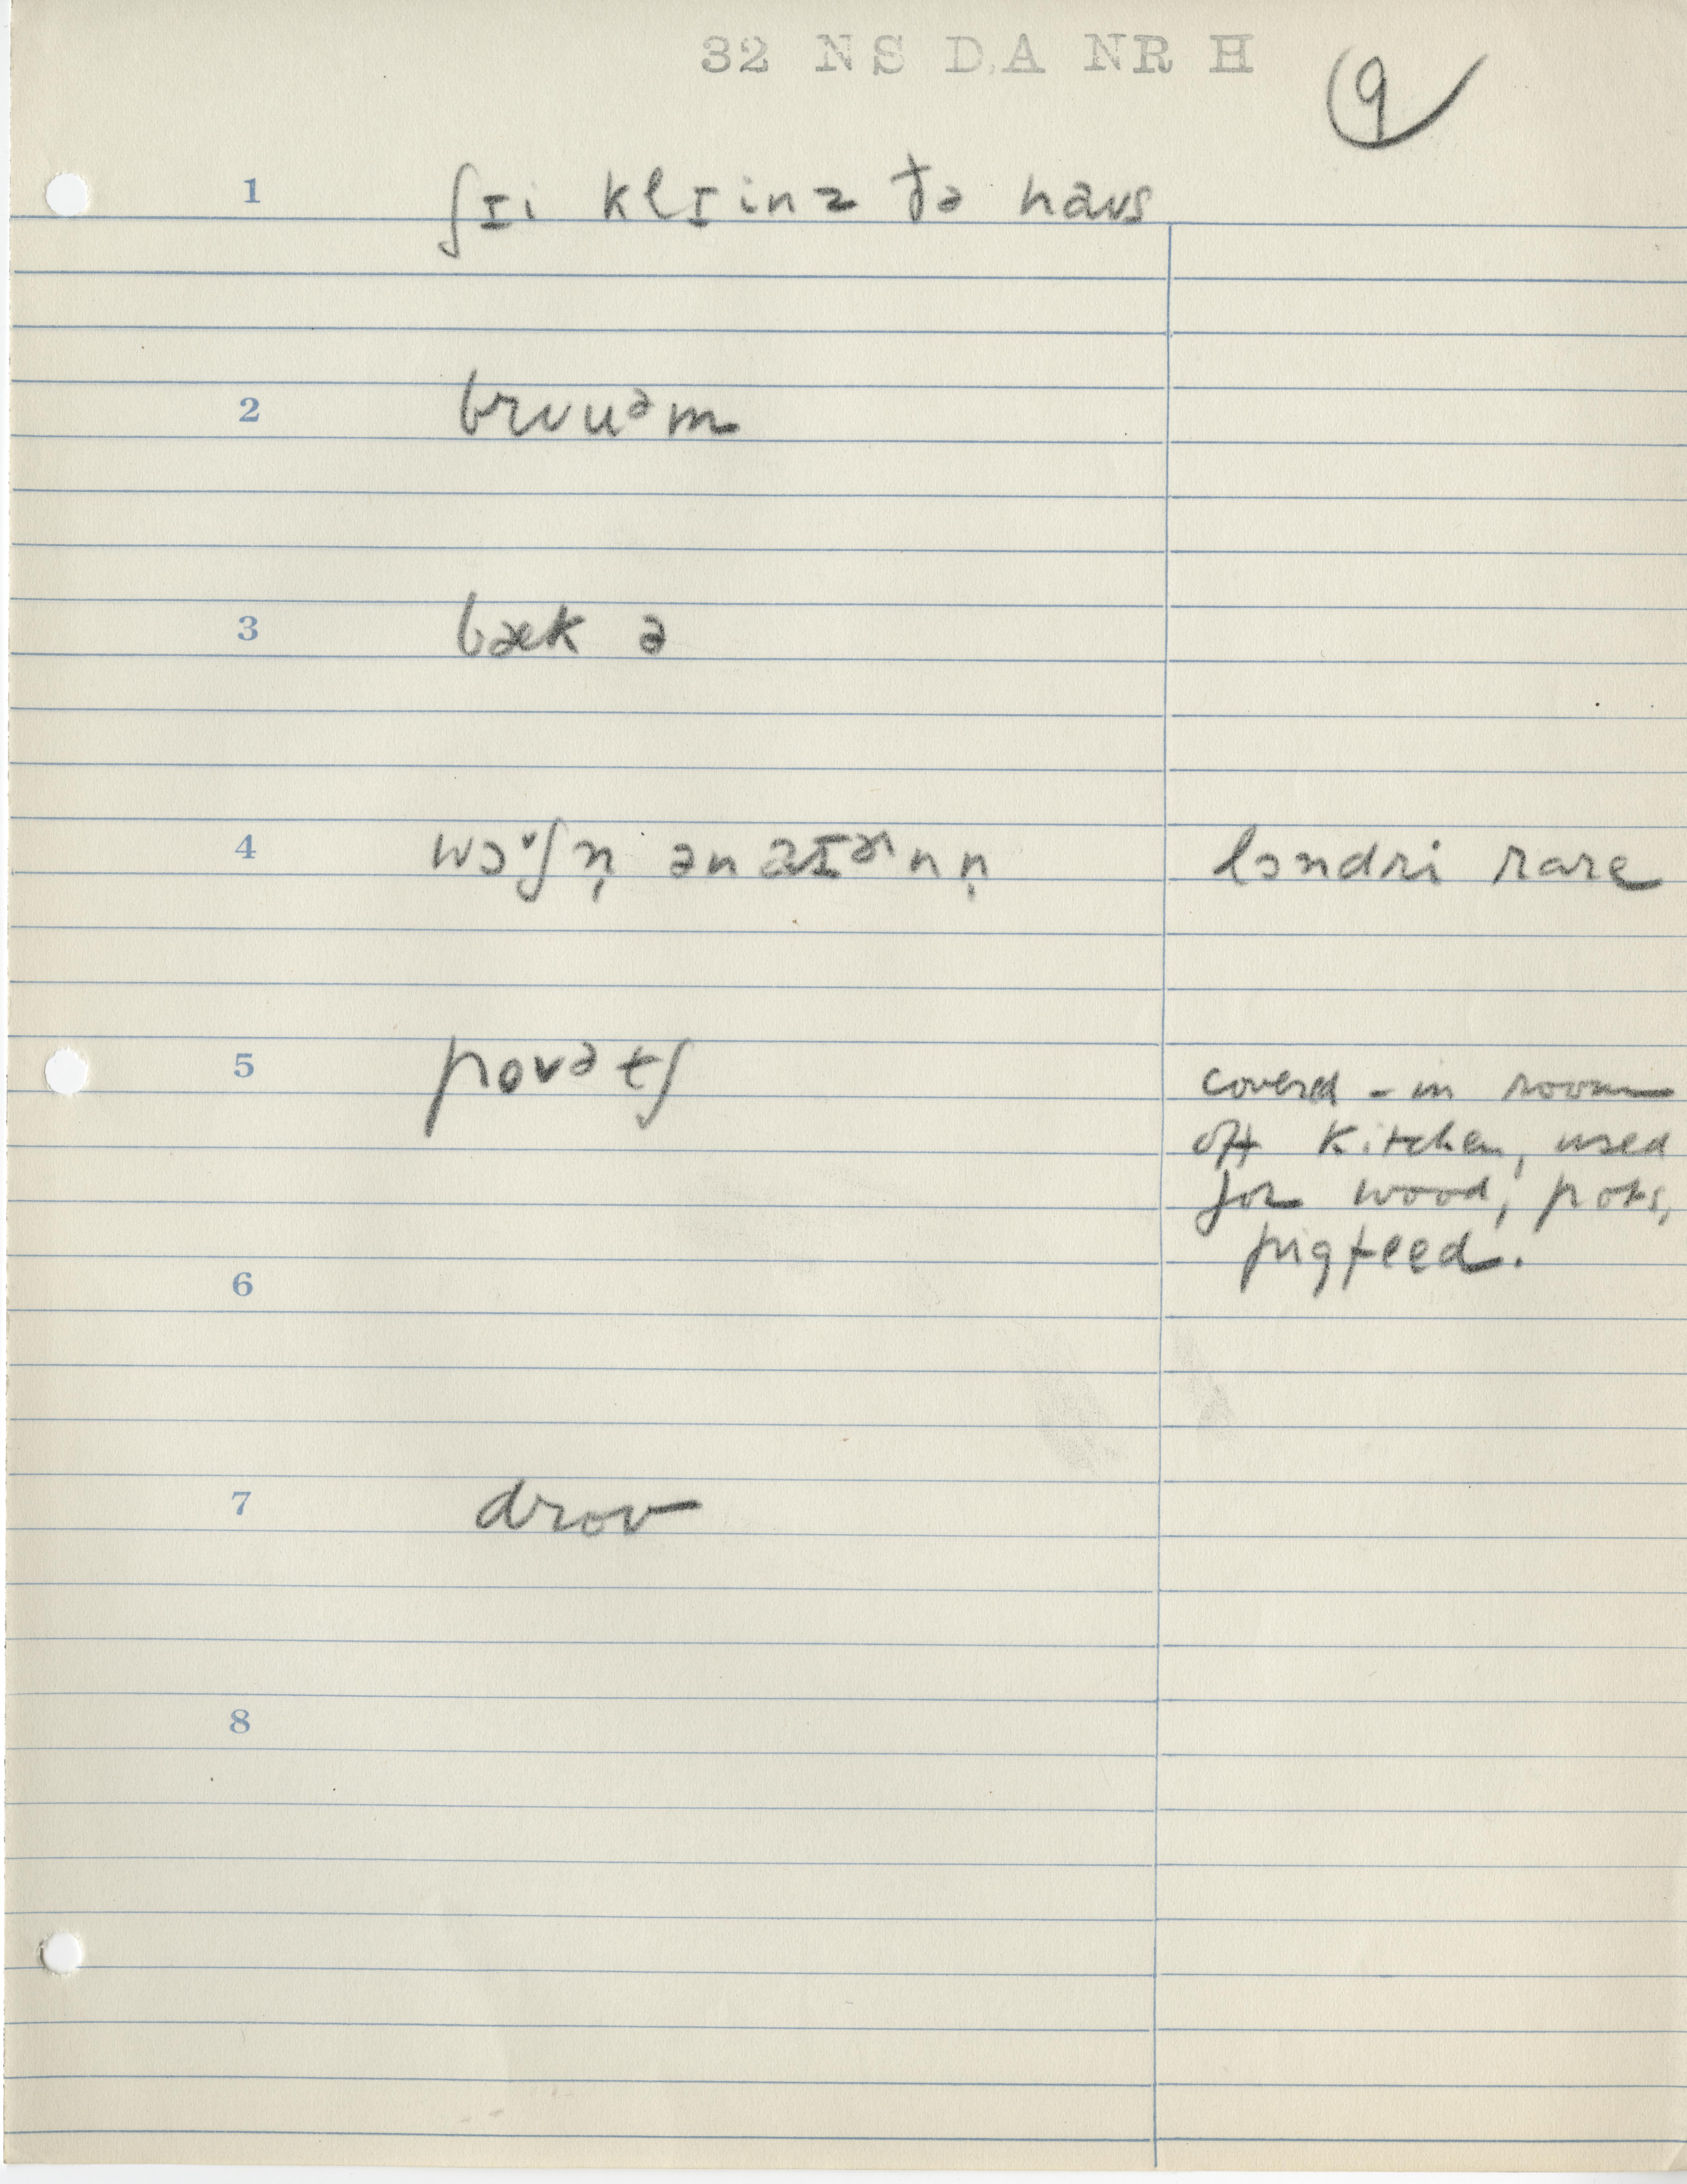 32 NS D.A NR H
9
1 ʃɪi klɪinz ðə haus
2 brʊuᵊm
3 bæk ə
4 wɔˇʃn̩ ən aɪɚnn̩ lɔndri rare
5 poʊᵊtʃ
covered-in room
off kitchen, used
for wood, pots,
pigfeed.
6
7 droʊ
8